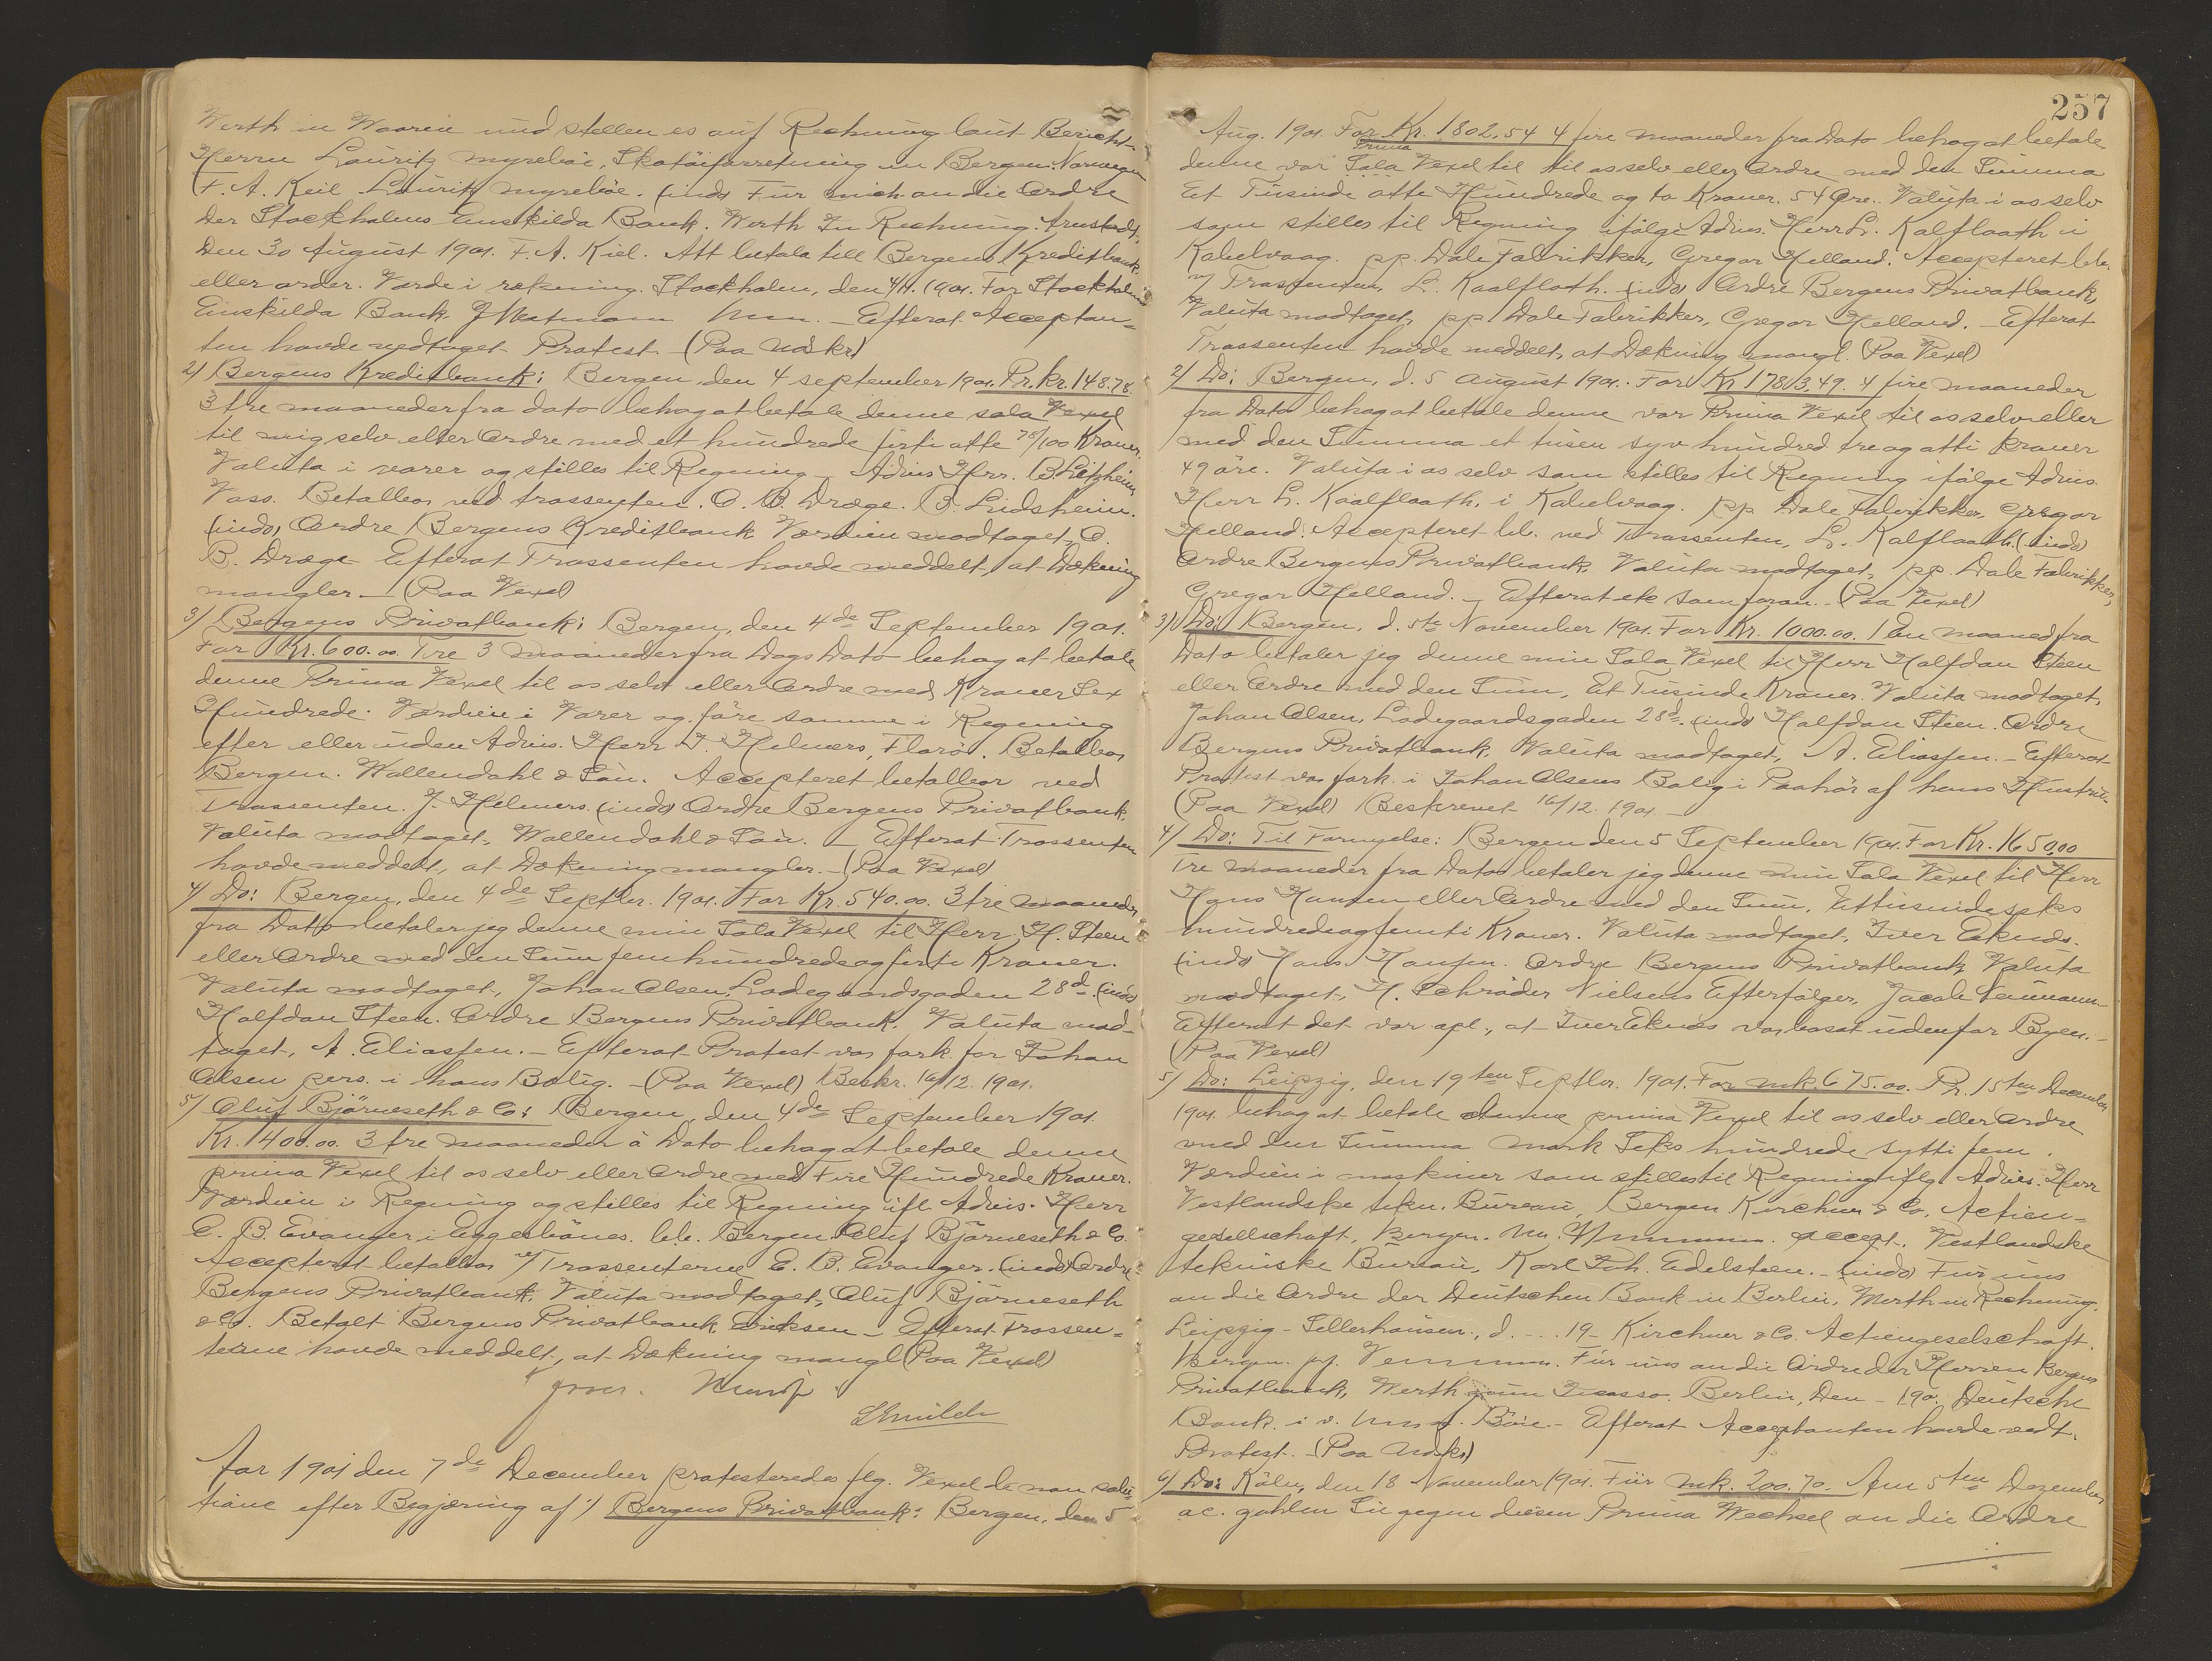 Werth in Waaren und stellen es auf Rechnung laut Bericht.
Herrn Lauritz Myreböe, Skotöiforretning in Bergen Norwegen
F. A. Keil. Lauritz Myreböe. (indo) Für mich an die Ordre
der Stockholms Enskilda Bank. Werth In Rechnung. Arnstadt,
den 30 August 1901. F. A. Kiel. Att betala till Bergens Kreditbank
eller order. Värde i räkning. Stockholm, den 4/11. 1901. For Stockholms
Enskilda Bank. – Efterat Acceptan-
ten havde vedtaget Protest – (Paa Udskr)
2) Bergens Kreditbank: Bergen, den 4 september 1901. Pr. kr. 148.78.
3 tre maaneder fra dato behag at betale denne sola Vexel
til mig selv eller Ordre med et hundrede firti otte 78/100 Kroner.
Valuta i varer og stilles til Regning – Advis Herr. B. Litzheim
Voss. Betalbar ved trassenten. O. B. Dræge. B. Lidsheim.
(indo) Ordre Bergens Kreditbank Værdien modtaget, O.
B. Dræge – Efterat Trassenten havde meddelt, at Dækning
mangler – (Paa Vexel)
3) Bergens Privatbank: Bergen, den 4de September 1901.
For Kr. 600.00. Tre 3 maaneder fra Dags Dato behag at betale
denne Prima Vexel til os selv eller Ordre med Kroner Sex
Hundrede. Værdien i Varer og före samme i Regning
efter eller uden Advis. Herr J. Helmers, Florö. Betalbar
Bergen. Wallendahl & Sön. Accepteret betalbar ved
Trassenten. J. Helmers. (indo) Ordre Bergens Privatbank.
Valuta modtaget, Wallendahl & Sön. – Efterat Trassenten
havde meddelt, at Dækning mangler. – (Paa Vexel)
4) Do: Bergen, den 4de Septbr. 1901. For Kr. 540.00. 3 tre maaneder
fra Dato betaler jeg denne min Sola Vexel til Herr H. Steen
eller Ordre med den Sum femhundredeogfirti Kroner.
Valuta modtaget, Johan Olsen, Ladegaardsgaden 28d. (indo)
Halfdan Steen. Ordre Bergens Privatbank. Valuta mod-
taget, A. Eliassen. – Efterat Protest var fork. for Johan
Olsen pers. i hans Bolig. – (Paa Vexel) Beskr. 16/12. 1901.
5) Oluf Björneseth & Co: Bergen, den 4de September 1901.
Kr. 1400.00. 3 tre maaneder à Dato behag at betale denne
prima Vexel til os selv eller Ordre med Fire Hundrede Kroner.
Værdien i Regning og stilles til Regning ifl. Advis. Herr
E. B. Evanger, i Eggesbönes. btb. Bergen. Oluf Björneseth & Co.
Accepteret betalbar v/ Trassenterne E. B. Evanger. (indo) Ordre
Bergens Privatbank. Valuta modtaget, Oluf Björneseth
& Co. Betalt Bergens Privatbank, Eriksen – Efterat Trassen-
terne havde meddelt, at Dækning mangl (Paa Vexel)
Aar 1901 den 7de December protesteredes flg. Vexel de non solu-
tione efter Begjæring af 1) Bergens Privatbank: Bergen, den 5
257
Aug. 1901. For Kr. 1802.54 4 fire maaneder fra Dato behag at betale
Prima
denne vor Sola Vexel til til os selv eller Ordre med den Summa
Et Tusinde otte Hundrede og to Kroner. 54 Øre. Valuta i os selv
som stilles til Regning ifölge Advis. Herr L. Kalflaath i
Kabelvaag. pp. Dale Fabrikker, Gregor Helland. Accepteret btb.
v/ Trassenten, L. Kaalfloth. (indo) Ordre Bergens Privatbank,
Valuta modtaget, pp. Dale Fabrikker, Gregor Helland. – Efterat
Trassenten havde meddelt, at Dækning mangl. (Paa Vexel)
2) Do: Bergen, d. 5 August 1901. For Kr 1783.49. 4 fire maaneder
fra Dato behag at betale denne vor Prima Vexel til os selv eller
med den Summa et tusen syv hundred treogatti kroner
49 öre. Valuta i os selv som stilles til Regning ifölge Advis.
Herr L. Kaalflaath, i Kabelvaag. pp Dale Fabrikker, Gregor
Helland. Accepteret btb. ved Trassenten, L. Kalflaath. (indo)
Ordre Bergens Privatbank, Valuta modtaget, pp. Dale Fabrikker,
Gregor Helland. – Efterat etc som foran. – (Paa Vexel)
3) Do: Bergen, d. 5te November 1901. For Kr. 1000.00. 1 En maaned fra
Dato betaler jeg denne min Sola Vexel til Herr Halfdan Steen
eller Ordre med den Sum, Et Tusinde Kroner. Valuta modtaget,
Johan Olsen, Ladegaardsgaden 28d. (indo) Halfdan Steen. Ordre
Bergens Privatbank, Valuta modtaget, A. Eliassen. – Efterat
Protest var fork. i Johan Olsens Bolig i Paahör af hans Hustru.
(Paa Vexel) Beskrevet 16/12. 1901 –
4) Do: Til Fornyelse: Bergen den 5 September 1901. For Kr. 1650,00
Tre maaneder fra Dato betaler jeg denne min Sola Vexel til Herr
Hans Hansen eller Ordre med den Sum, Ettusindeseks
hundredeogfemti Kroner. Valuta modtaget, Iver Eknæs.
(indo) Hans Hansen. Ordre Bergens Privatbank, Valuta
modtaget, H. Schröder Nielsens Efterfölger, Jacob Neumann –
Efterat det var opl., at Iver Eknæs var bosat udenfor Byen. –
(Paa Vexel)
5) Do: Leipzig, den 19ten Septbr. 1901. For mk. 675.00. Pr. 15ten December
1901. behag at betale denne prima Vexel til os selv eller Ordre
med den Summa Mark Seks hundrede sytti fem.
Værdien i maskiner som stilles til Regning iflg. Advis. Herr
Vestlandske tekn. Bureau, Bergen Kirchner & Co, Actien-
gesellschaft, Bergen. Accept. Vestlandske
tekniske Bureau, Karl Joh. Edelsteen. – (indo) Für uns
an die Ordre der Deutschen Bank in Berlin, Werth in Rechnung.
Leipzig-Sellerhausen, d. – 19 – Kirchner & Co. Actiengeselschaft.
Bergen. Für uns an die Ordre der Herren Bergens
Privatbank, Werth zum Incasso. Berlin, den – 190. Deutsche
Bank. i. v. – Efterat Acceptanten havde vedt.
Protest. – (Paa Udskr)
6) Do: Köln, den 18 November 1901. Für mk. 200.70. Am 5ten Dezember
ac. zahlen Sie gegen diesen Prima Wechsel an die Ordre